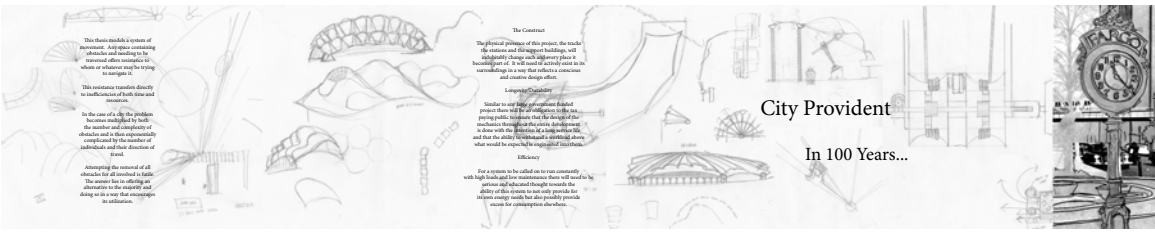 This thesis models a system of
movement. Any space containing
obstacles and needing to be
traversed offers resistance to
whom or whatever may be trying
to navigate it.
This resistance transfers directly
to inefficiencies of both time and
resources.
In the case of a city the problem
becomes multiplied by both
the number and complexity of
obstacles and is then exponentially
complicated by the number of
individuals and their direction of
travel.
Attempting the removal of all
obstacles for all involved is futile.
The answer lies in offering an
alternative to the majority and
doing so in a way that encourages
its utilization.
The Construct
The physical presence of this project, the tracks
the stations and the support buildings, will
indubitably change each and every place it
becomes part of. It will need to actively exist in its
surroundings in a way that reflects a conscious
and creative design effort.
Longevity/Durability
Similar to any large government funded
project there will be an obligation to the tax
paying public to ensure that the design of the
mechanics throughout the entire development
is done with the intention of a long service life
and that the ability to withstand a workload above
what would be expected is engineered into them.
Efficiency
For a system to be called on to run constantly
with high loads and low maintenance there will need to be
serious and educated thought towards the
ability of this system to not only provide for
its own energy needs but also possibly provide
excess for consumption elsewhere.
City Provident
In 100 Years...
FARGO